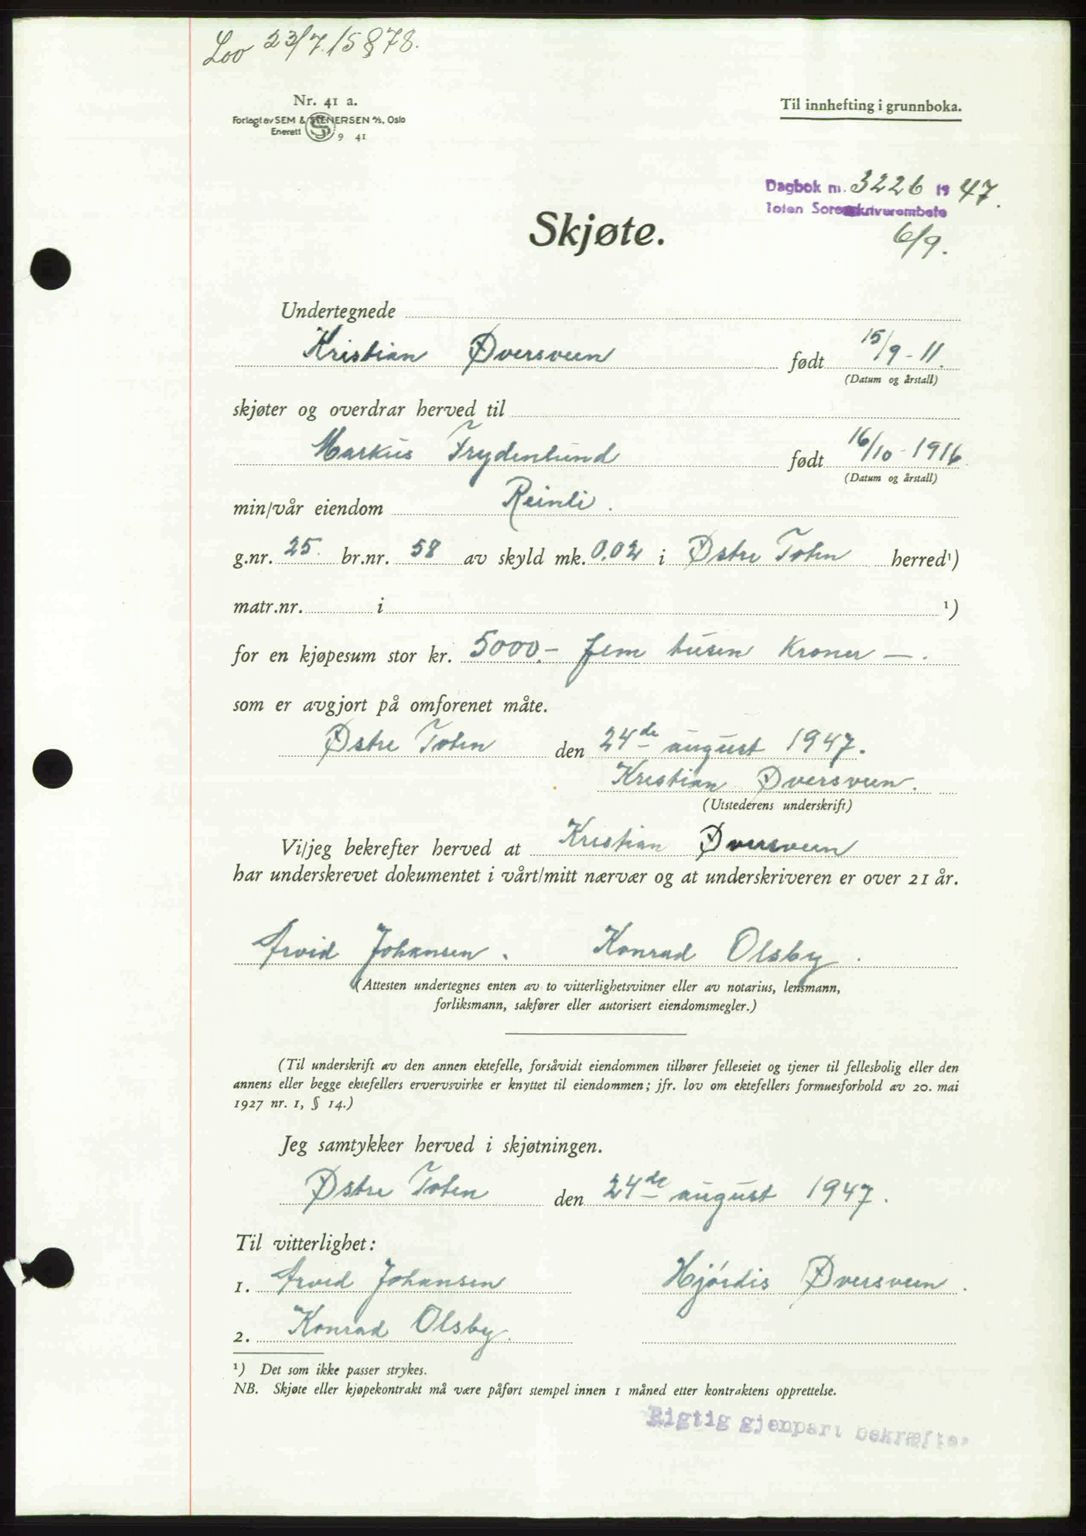 23/7. 15878.
Nr. 41 a.
Forlagt av SEM & STENERSEN A/S, Oslo
Enerett 9 41
Til innhefting i grunnboka.
Dagbok nr. 3226 1947.
Toten Sorenskriverembete
6/9.
Skjøte.
Undertegnede
Kristian Øversveen født 15/9-11.
(Datum og årstall)
skjøter og overdrar herved til
Markus Frydenlund født 16/10-1916
(Datum og årstall)
min/vår eiendom Reinli.
g.nr. 25. br.nr. 58 av skyld mk. 0.02 i Østre Toten herred¹)
matr.nr. i ¹)
for en kjøpesum stor kr. 5000.- fem tusen Kroner —.
som er avgjort på omforenet måte.
Østre Toten den 24de august 1947.
Kristian Øversveen.
(Utstederens underskrift)
Vi/jeg bekrefter herved at Kristian Øversveen
har underskrevet dokumentet i vårt/mitt nærvær og at underskriveren er over 21 år.
Arvid Johansen. Konrad Olsby.
(Attesten undertegnes enten av to vitterlighetsvitner eller av notarius, lensmann,
forliksmann, sakfører eller autorisert eiendomsmegler.)
(Til underskrift av den annen ektefelle, forsåvidt eiendommen tilhører felleseiet og tjener til fellesbolig eller den
annens eller begge ektefellers ervervsvirke er knyttet til eiendommen; jfr. lov om ektefellers formuesforhold av 20. mai
1927 nr. 1, § 14.)
Jeg samtykker herved i skjøtningen.
Østre Toten den 24de august 1947.
Til vitterlighet:
1. Arvid Johansen Hjórdis Øversveen.
2. Konrad Olsby.
¹) Det som ikke passer strykes.
NB. Skjøte eller kjøpekontrakt må være påført stempel innen 1 måned etter kontraktens opprettelse.
Rigtig gjenpart bekræftes